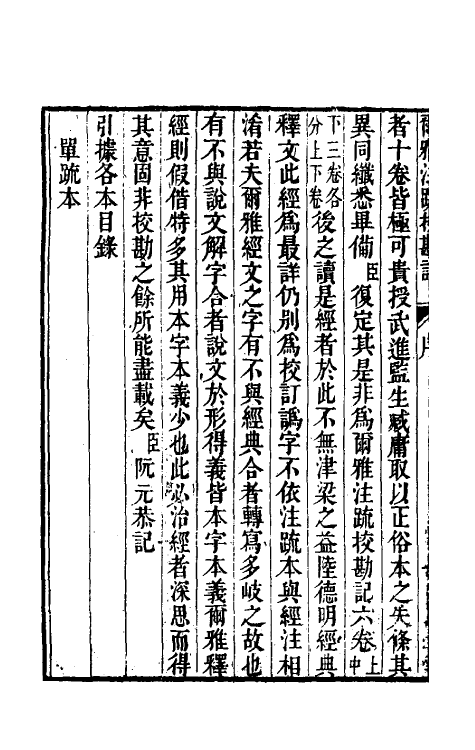 爾雅注疏挍勘記 序
者十卷皆極可貴授武進監生臧庸取以正俗本之失條其
異同纖悉畢備臣復定其是非為爾雅注疏挍勘記六卷上中
下三卷各分上下卷後之讀是經者於此不無津梁之益陸德明經典
釋文此經為最詳仍別為校訂譌字不依注疏本與經注相
淆若夫爾雅經文之字有不與經典合者轉寫多岐之故也
有不與說文解字合者說文於形得義皆本字本義爾雅釋
經則假借特多其用本字本義少也此必治經者深思而得
其意固非挍勘之餘所能盡載矣臣阮元恭記
引據各本目錄
單疏本